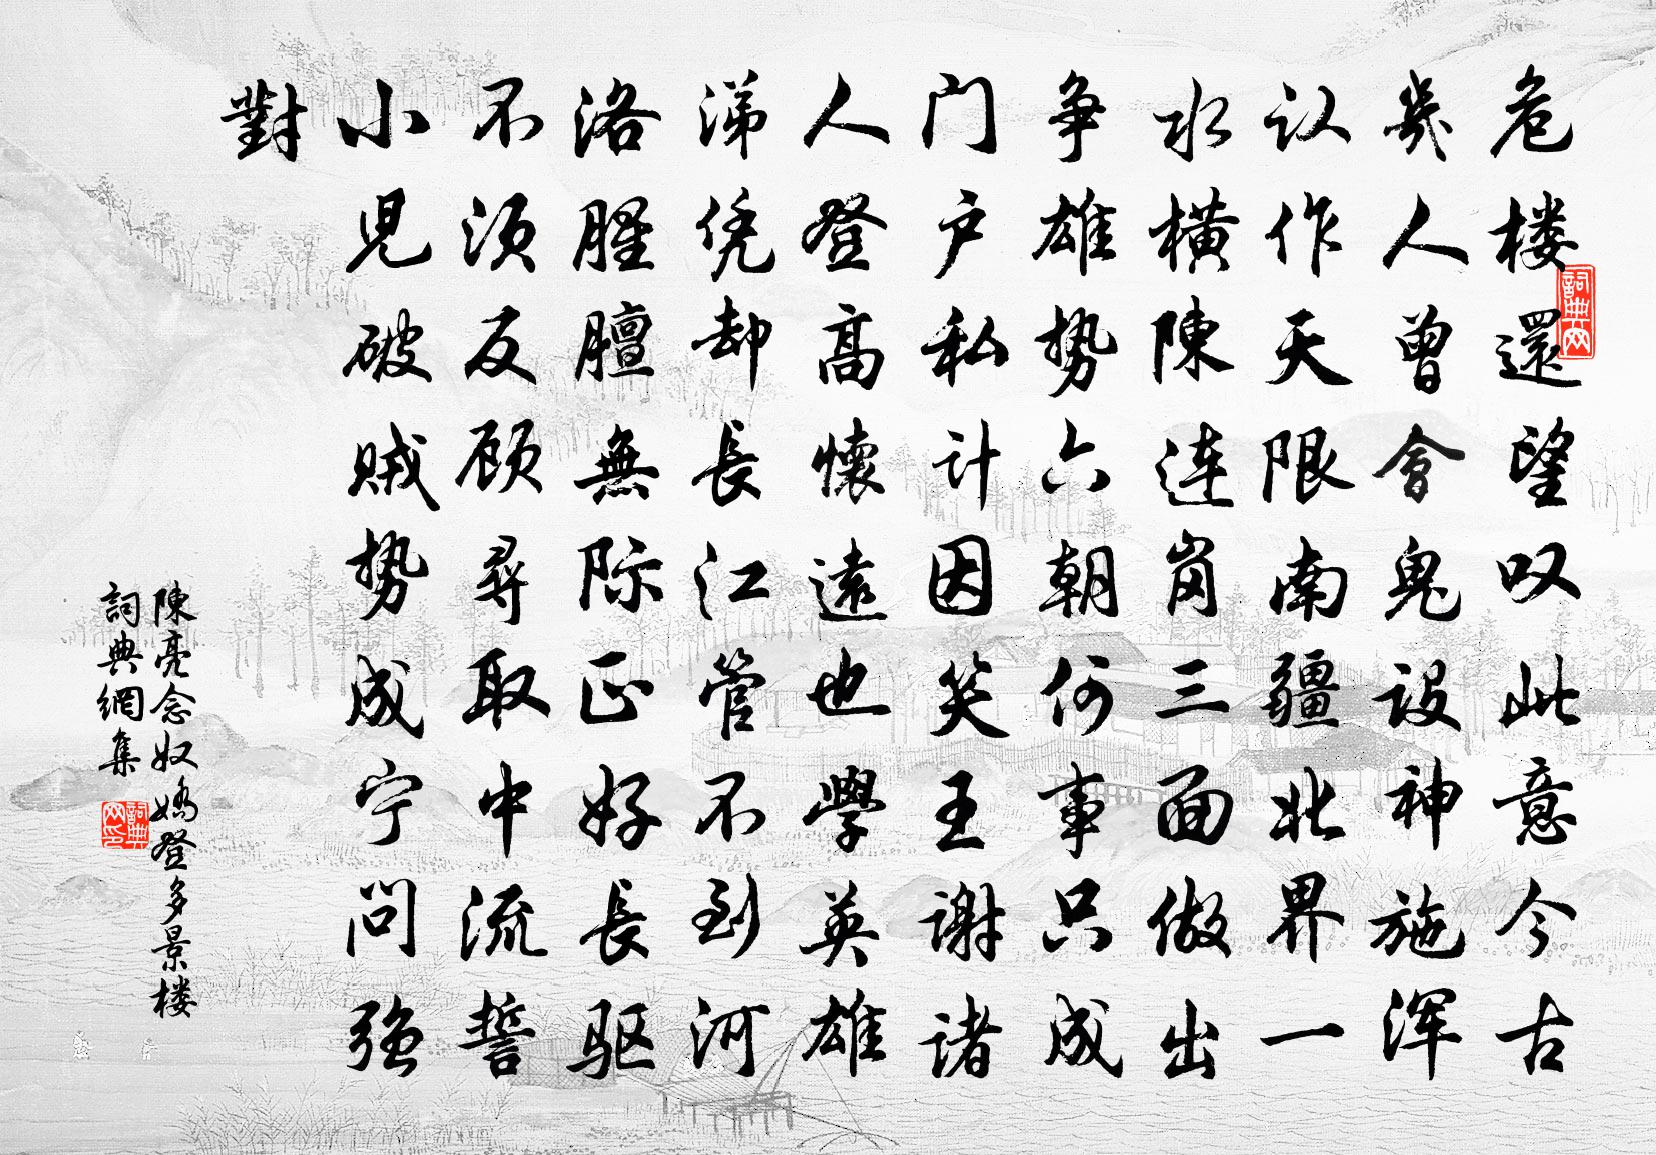 危楼還望叹此意今古
幾人曾會鬼设神施浑
认作天限南疆北界一
水横陳连岗三面做出
争雄势六朝何事只成
门户私计因笑王谢诸
人登高懷遠也學英雄
涕凭却長江管不到河
洛腥膻無际正好長驱
不须反顾尋取中流誓
小児破贼势成宁问强
對
陳亮念奴嬌登多景楼
詞典網集
詞典网
詞典网印